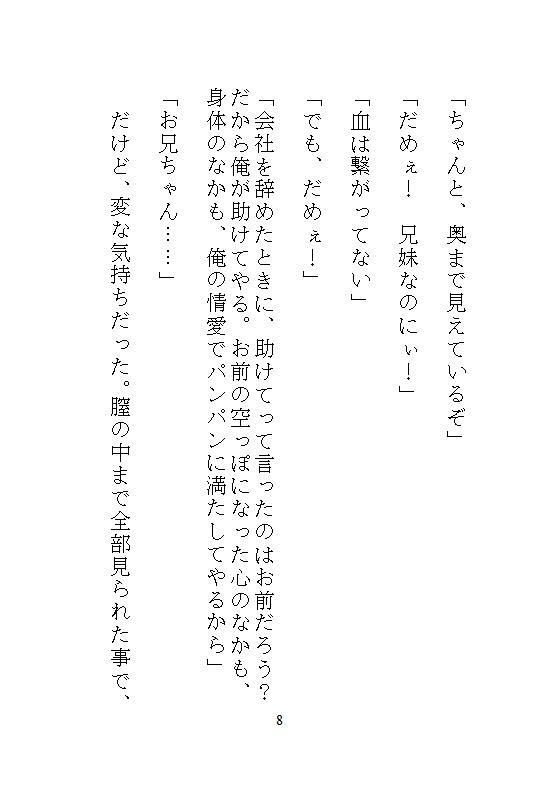 「ちゃんと、奥まで見えているぞ」
「だめぇ！　兄妹なのにぃ！」
「血は繋がってない」
「でも、だめぇ！」
「会社を辞めたときに、助けてって言ったのはお前だろう？
だから俺が助けてやる。お前の空っぽになった心のなかも、
身体のなかも、俺の情愛でパンパンに満たしてやるから」
「お兄ちゃん……」
だけど、変な気持ちだった。膣の中まで全部見られた事で、
8